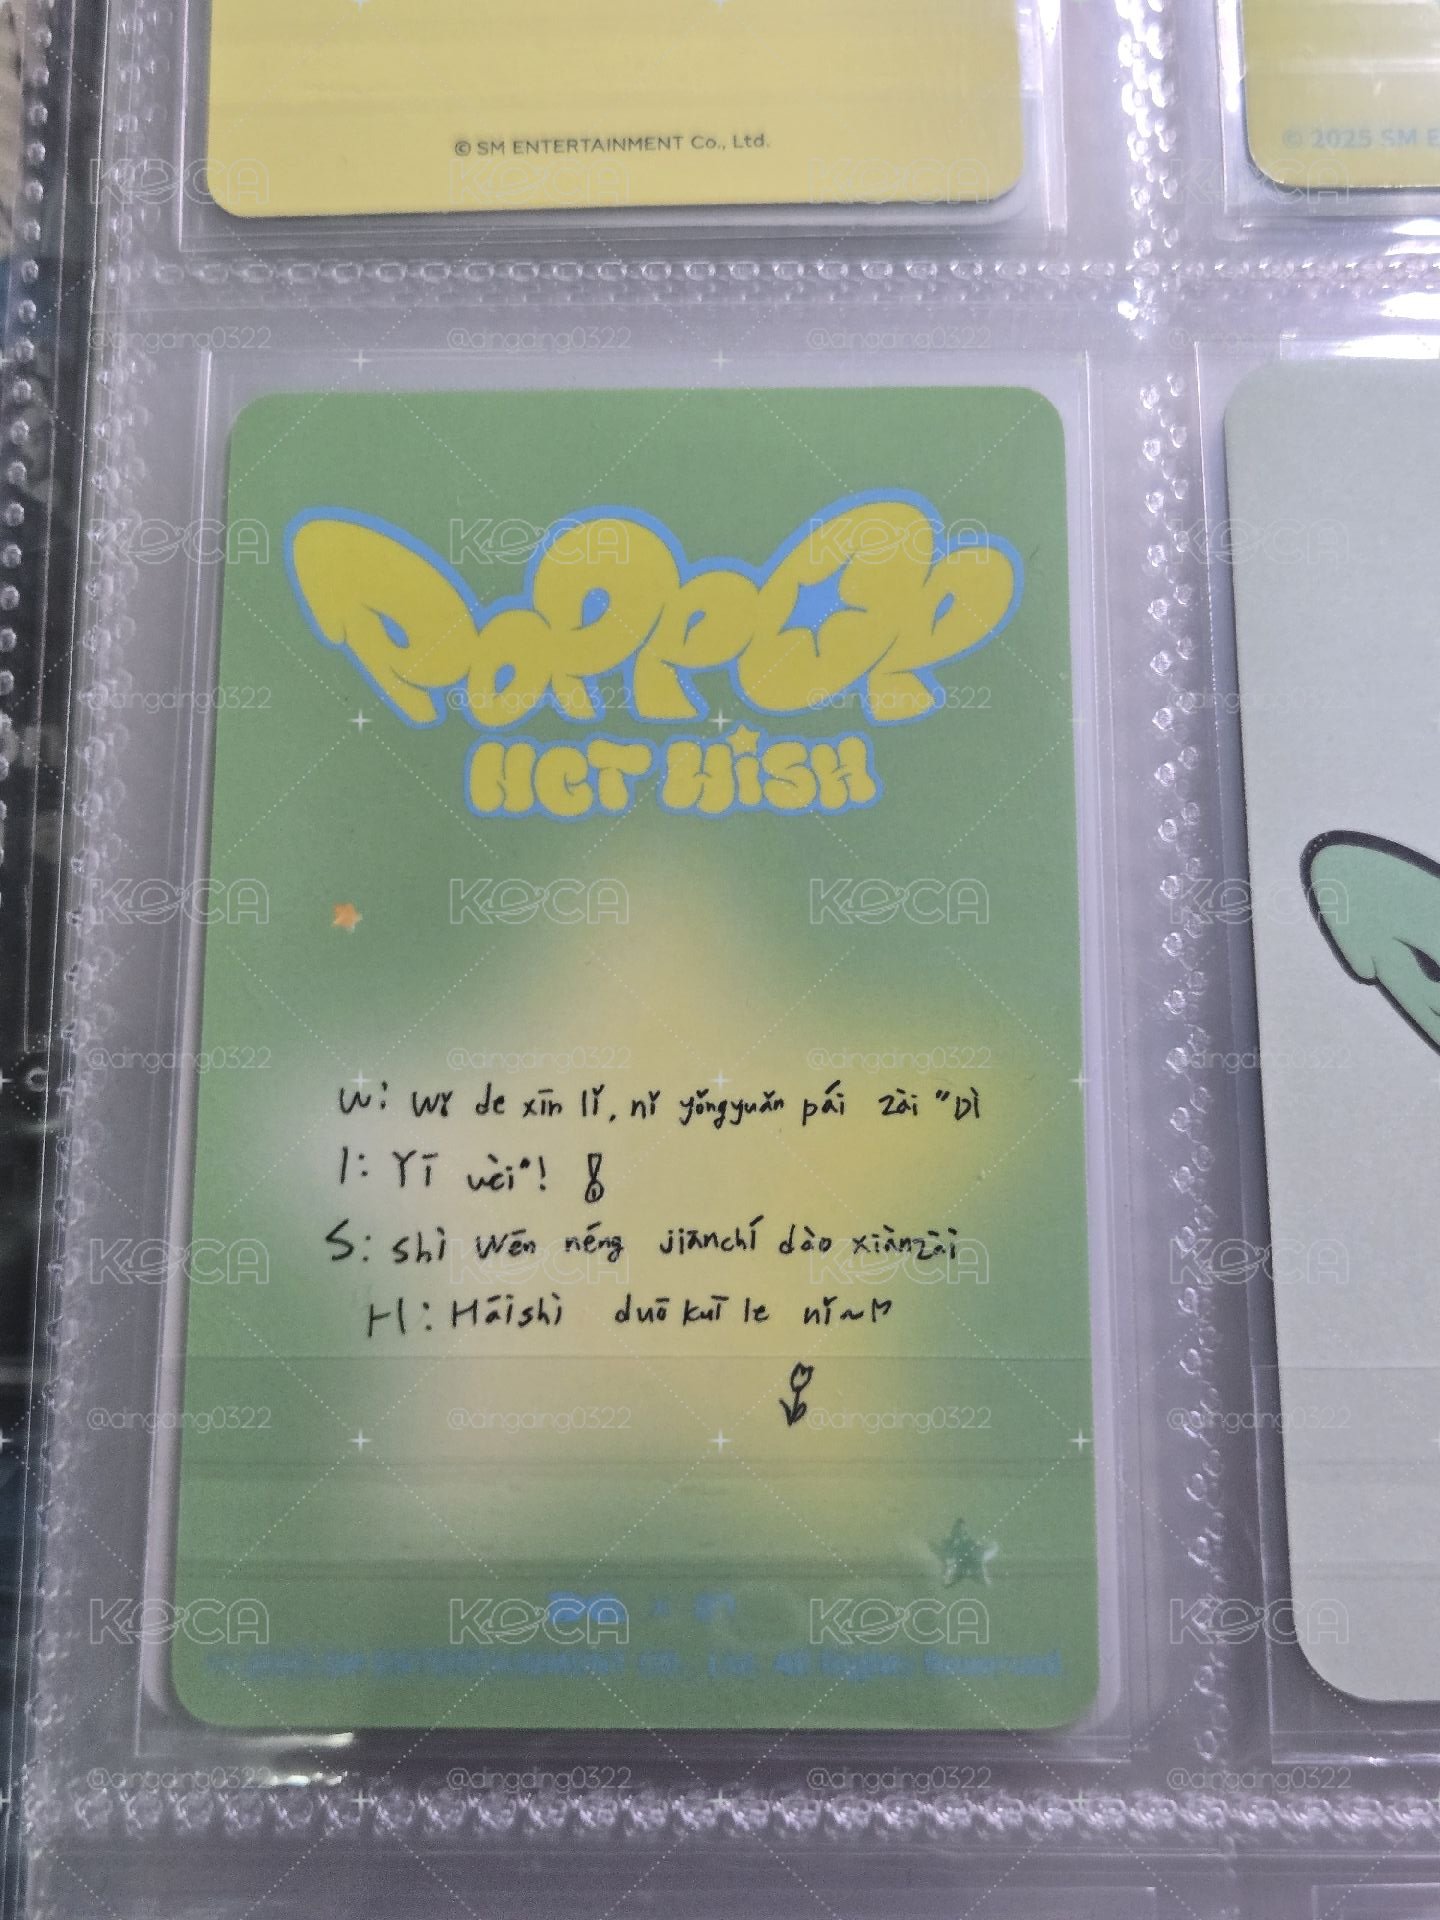 © SM ENTERTAINMENT Co., Ltd.
© 2025 SM E
POPPOP
NCT WISH
W: Wǒ de xīn lǐ, nǐ yǒngyuǎn pái zài "Dì
I: Yī wèi"!
S: shì Wēn néng jiānchí dào xiànzài
H: Háishì duō kuī le nǐ~
KOCA
@dingding0322